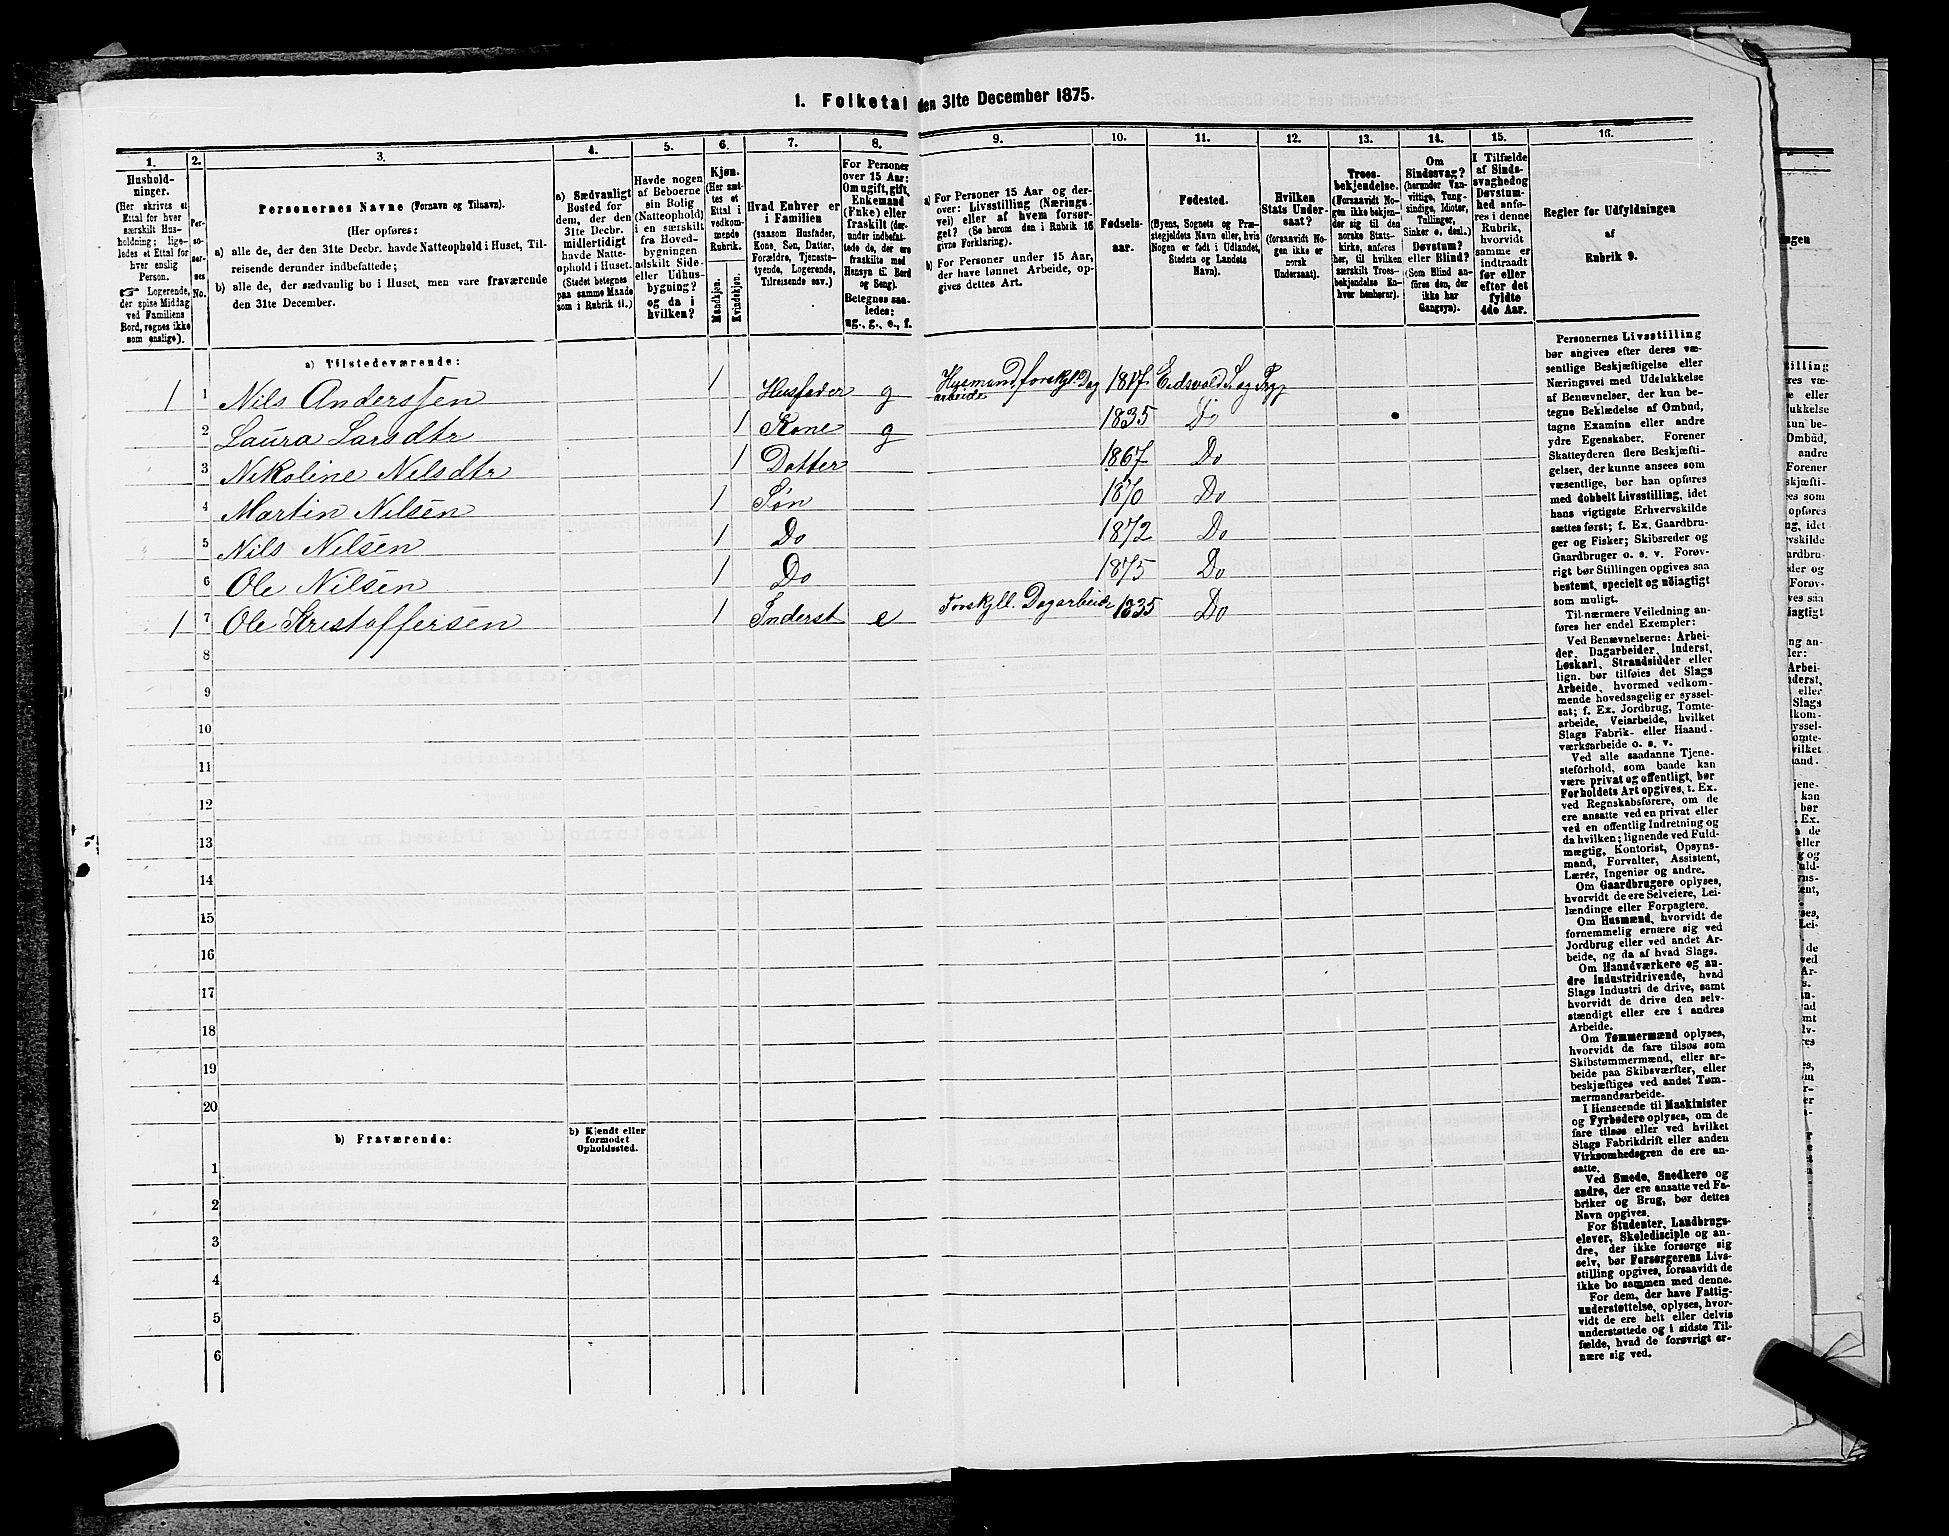 1. Folketal den 31te December 1875.
1.
2.
3.
4.
5.
6.
7.
8.
9.
10.
11.
12.
13.
14.
15.
16.
Hushold-
ninger.
(Her skrives et
Ettal for hver
særskilt Hus-
holdning; lige-
ledes et Ettal for
hver enslig
Person.
☞ Logerende,
der spise Middag
ved Familiens
Bord, regnes ikke
som enslige).
Per-
so-
ner-
nes
No.
Personernes Navne (Fornavn og Tilnavn).
(Her opføres:
a) alle de, der den 31te Decbr. havde Natteophold i Huset, Til-
reisende derunder indbefattede;
b) alle de, der sædvanlig bo i Huset, men vare fraværende
den 31te December.
a) Sædvanligt
Bosted for
dem, der den
31te Decbr.
midlertidigt
havde Natte-
ophold i Huset.
(Stedet betegnes
paa samme Maade
som i Rubrik 11.)
Havde nogen
af Beboerne
sin Bolig
(Natteophold)
i en særskilt
fra Hoved-
bygningen
adskilt Side-
eller Udhus-
bygning?
og da i
hvilken?
Kjøn.
(Her sæt-
tes et
Ettal i
vedkom-
mende
Rubrik.
Mandkjøn.
Kvindekjøn.
Hvad Enhver er
i Familien
(saasom Husfader,
Kone, Søn, Datter,
Forældre, Tjeneste-
tyende, Logerende,
Tilreisende osv.)
For Personer
over 15 Aar:
Om ugift, gift,
Enkemand
(Enke) eller
fraskilt (der-
under indbefat-
tede de, der ere
fraskilte med
Hensyn til Bord
og Seng).
Betegnes saa-
ledes:
ug., g., e., f.
a) For Personer 15 Aar og der-
over: Livsstilling (Nærings-
vei) eller af hvem forsør-
get? (Se herom den i Rubrik 16
givne Forklaring).
b) For Personer under 15 Aar,
der have lønnet Arbeide, op-
gives dettes Art.
Fødsels-
aar.
Fødested.
(Byens, Sognets og Præ-
stegjeldets Navn eller, hvis
Nogen er født i Udlandet,
Stedets og Landets
Navn).
Hvilken
Stats Under-
saat?
(forsaavidt No-
gen ikke er
norsk
Undersaat).
Troes-
bekjendelse.
(Forsaavidt No-
gen ikke bekjen-
der sig til den
norske Stats-
kirke, anføres
her, til hvilken
særskilt Troes-
bekjendelse En-
hver henhører).
Om
Sindssvag?
(herunder Van-
vittige, Tung-
sindige, Idioter,
Tullinger,
Sinker o. desl.)
Døvstum?
eller Blind?
(Som Blind an-
føres den, der
ikke har
Gangsyn).
I Tilfælde
af Sinds-
svaghed og
Døvstum-
hed anfø-
res i denne
Rubrik,
hvorvidt
samme er
indtraadt
før eller
efter det
fyldte
4de Aar.
Regler for Udfyldningen
af
Rubrik 9.
a) Tilstedeværende:
1 1 Nils Anderssen 1 Husfader g Husmand, forskjell. Dagarbeide 1817 Eidsvold S. og Prgj
2 Laura Larsdtr 1 Kone g 1835 Do
3 Nikoline Nilsdtr 1 Datter 1867 Do
4 Martin Nilsen 1 Søn 1870 Do
5 Nils Nilsen 1 Do 1872 Do
6 Ole Nilsen 1 Do 1875 Do
1 7 Ole Kristoffersen 1 Inderst e Forskjell. Dagarbeide 1835 Do
8
9
10
11
12
13
14
15
16
17
18
19
20
b) Fraværende:
b) Kjendt eller
formodet
Opholdssted.
1
2
3
4
5
6
Personernes Livsstilling
bør angives efter deres væ-
sentlige Beskjæftigelse eller
Næringsvei med Udelukkelse
af Benævnelser, der kun be-
tegne Beklædelse af Ombud,
tagne Examina eller andre
ydre Egenskaber. Forener
Skatteyderen flere Beskjæfti-
gelser, der kunne ansees som
væsentlige, bør han opføres
med dobbelt Livsstilling, idet
hans vigtigste Erhvervskilde
sættes først; f. Ex. Gaardbru-
ger og Fisker; Skibsreder og
Gaardbruger o. s. v. Forøv-
rigt bør Stillingen opgives saa
bestemt, specielt og nøiagtigt
som muligt.
Til nærmere Veiledning an-
føres her endel Exempler:
Ved Benævnelserne: Arbei-
der, Dagarbeider, Inderst,
Løskarl, Strandsidder eller
lign. bør tilføies det Slags
Arbeide, hvormed vedkom-
mende hovedsagelig er syssel-
sat; f. Ex. Jordbrug, Tomte-
arbeide, Veiarbeide, hvilket
Slags Fabrik- eller Haand-
værksarbeide o. s. v.
Ved alle saadanne Tjene-
steforhold, som baade kan
være privat og offentligt, bør
Forholdets Art opgives, t. Ex.
ved Regnskabsførere, om de
ere ansatte ved en privat eller
ved en offentlig Indretning og
da hvilken; lignende ved Fuld-
mægtig, Kontorist, Opsyns-
mand, Forvalter, Assistent,
Lærer, Ingeniør og andre.
Om Gaardbrugere oplyses,
hvorvidt de ere Selveiere, Lei-
lændinge eller Forpagtere.
Om Husmænd, hvorvidt de
fornemmelig ernære sig ved
Jordbrug eller ved andet Ar-
beide, og da af hvad Slags.
Om Haandværkere og an-
dre Industridrivende, hvad
Slags Industri de drive, samt
hvorvidt de drive den selv-
stændigt eller ere i andres
Arbeide.
Om Tømmermænd oplyses,
hvorvidt de fare tilsøs som
Skibstømmermænd, eller ar-
beide paa Skibsværfter, eller
beskjæftiges ved andet Tøm-
mermandsarbeide.
I Henseende til Maskinister
og Fyrbødere oplyses, om de
fare tilsøs eller ved hvilket
Slags Fabrikdrift eller anden
Virksomhedsgren de ere an-
satte.
Ved Smede, Snedkere og
andre, der ere ansatte ved Fa-
briker og Brug, bør dettes
Navn opgives.
For Studenter, Landbrugs-
elever, Skoledisciple og an-
dre, der ikke forsørge sig
selv, bør Forsørgerens Livs-
stilling opgives, forsaavidt de
ikke bo sammen med denne.
For dem, der have Fattig-
understøttelse, oplyses, hvor-
vidt de ere helt eller delvis
understøttede og i sidste Til-
fælde, hvad de forøvrigt er-
nære sig ved.